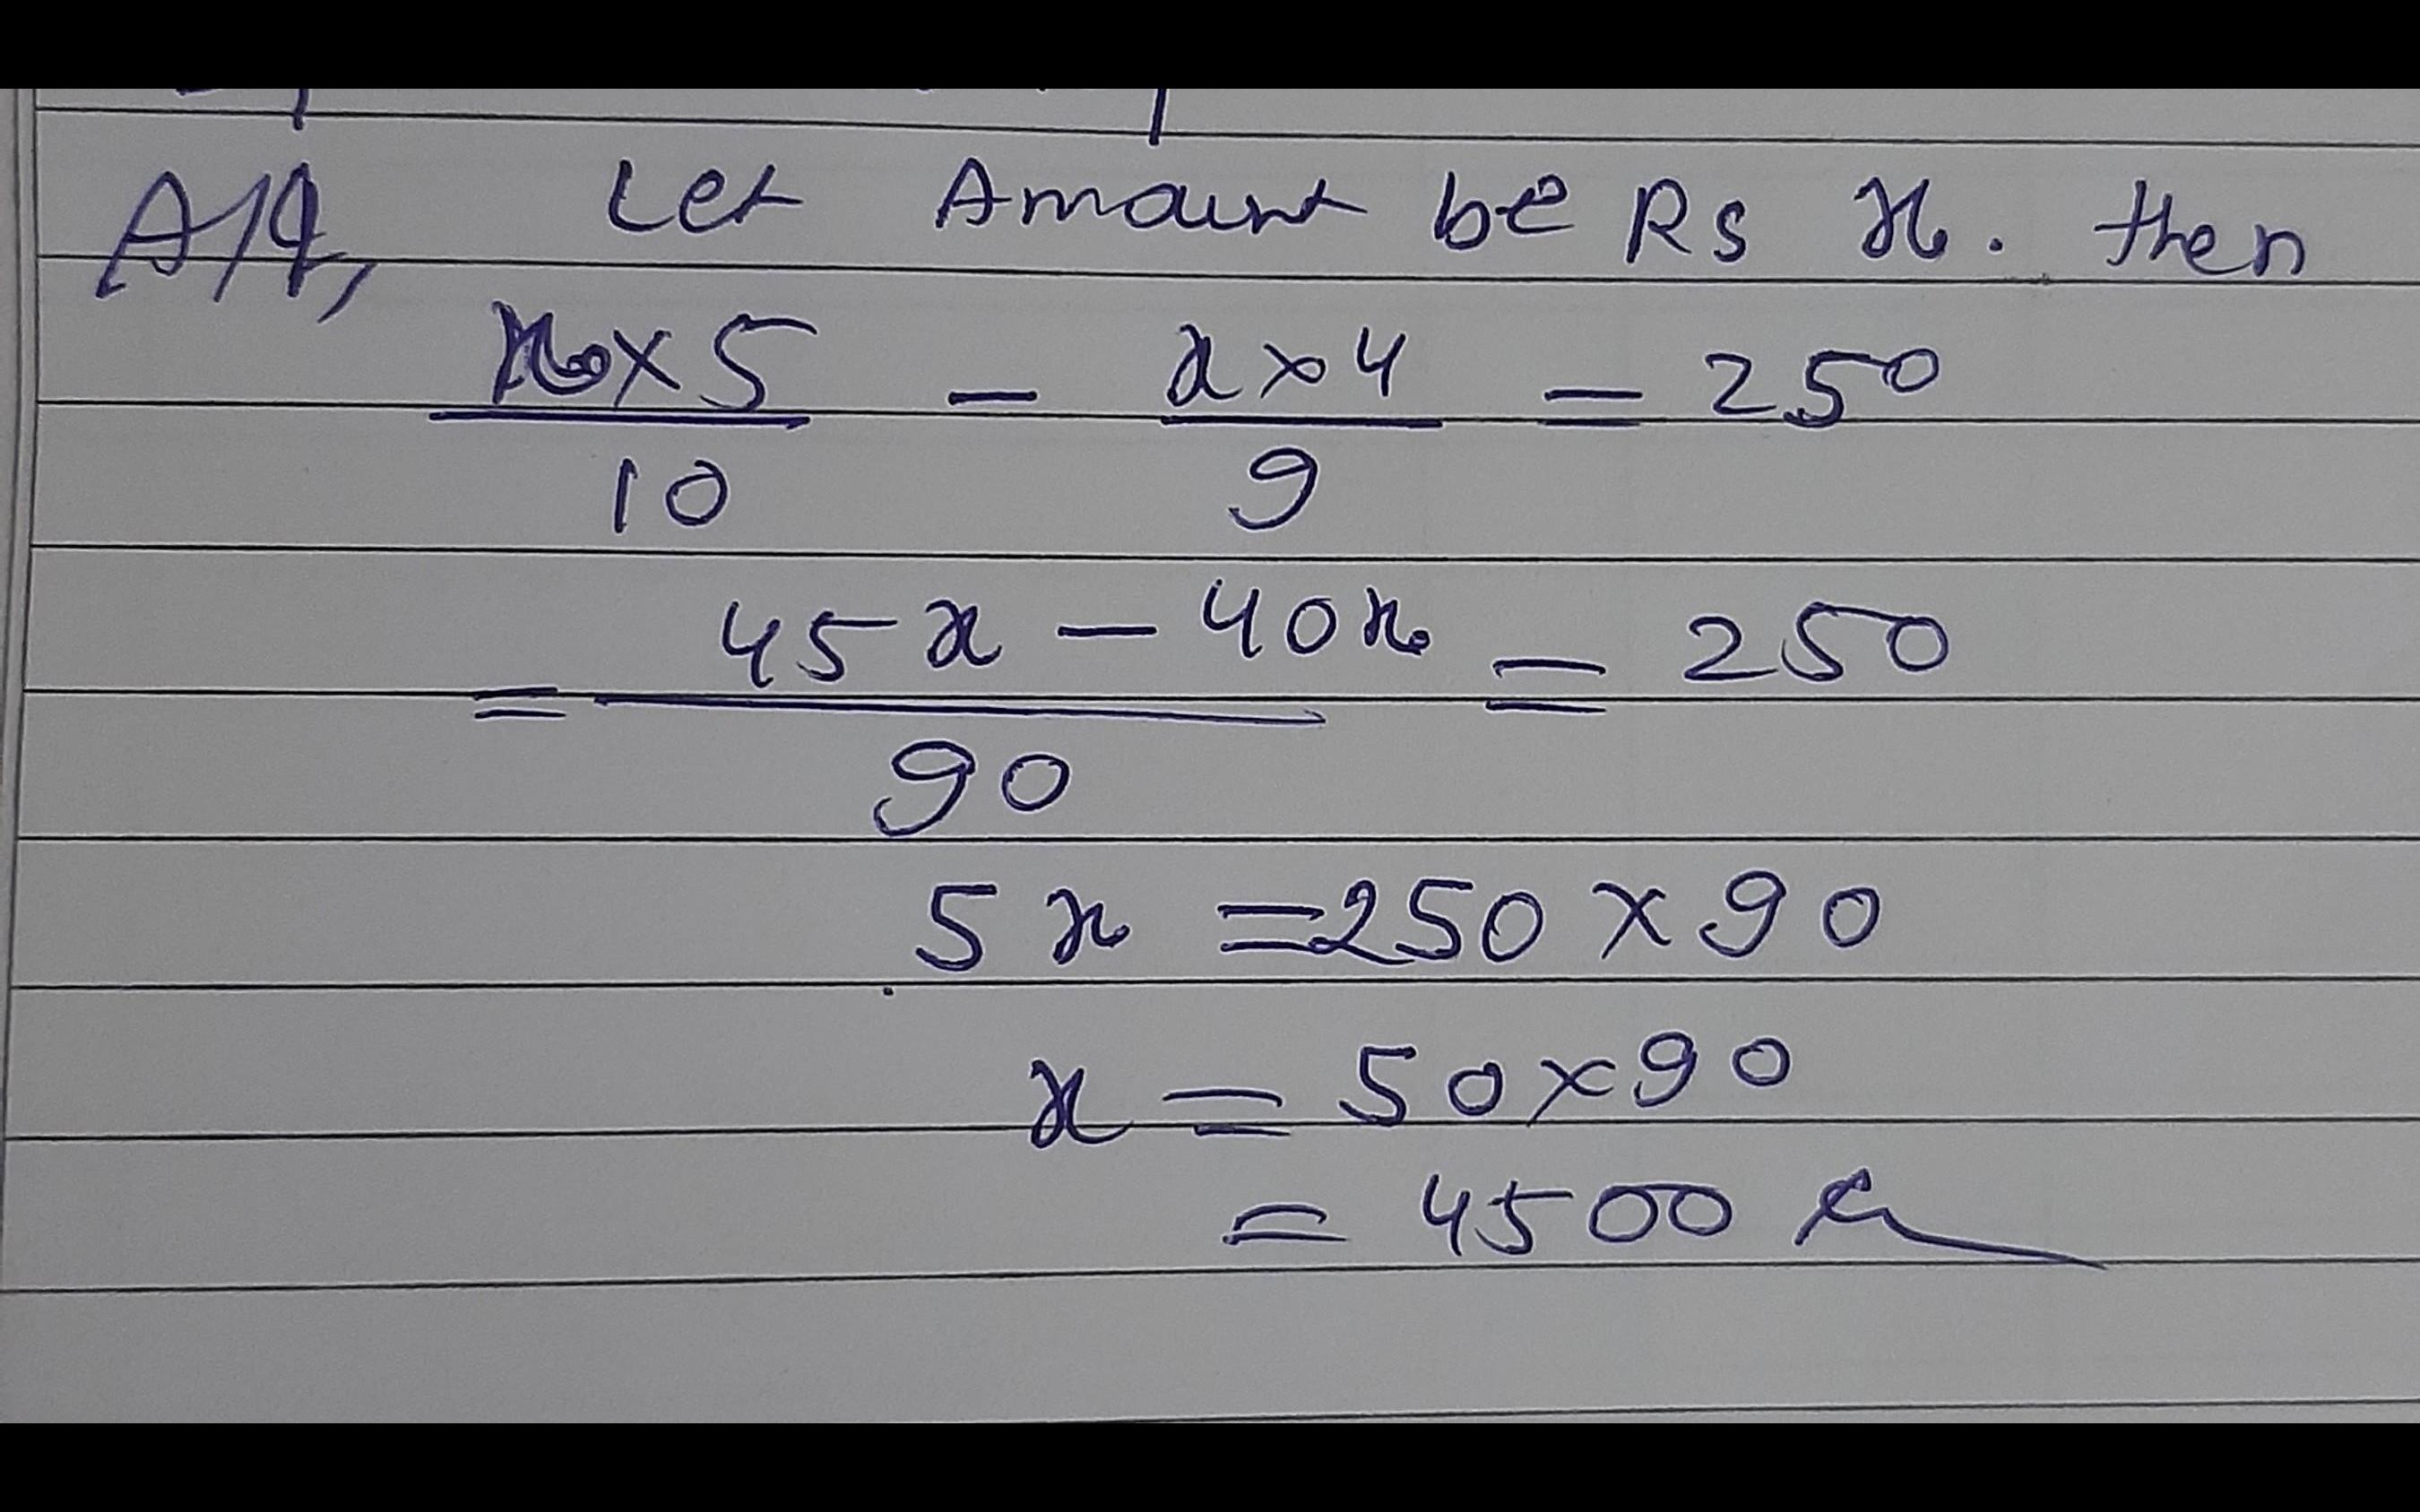 A/Q, Let Amount be Rs x. then
x×5/10 - x×4/9 = 250
= 45x - 40x/90 = 250
5x = 250 × 90
x = 50×90
= 4500